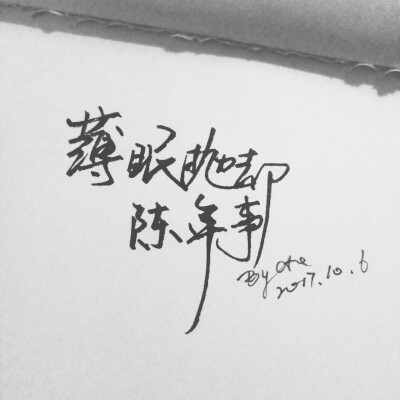 薄眠抛却
陈年事
By
2017.10.6